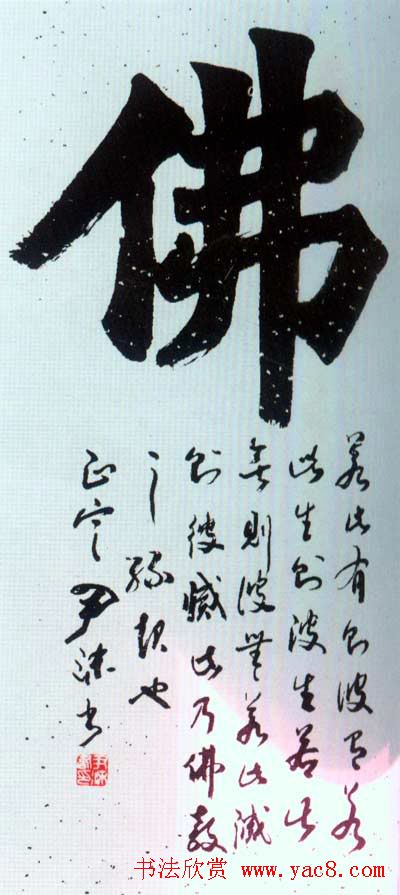 佛
若此有則彼有若
此生則彼生若此
無則彼無若此滅
則彼滅此乃佛教
之緣起也
正宁尹 书
书法欣赏 www.yac8.com